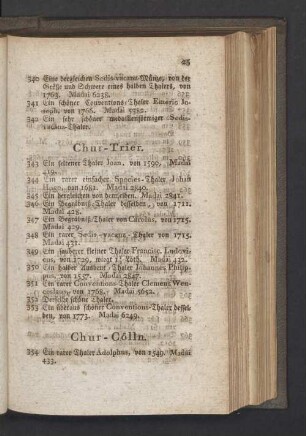 25
340 Eine dergleichen Sedis-vacanz-Münze, von der
Größe und Schwere eines halben Thalers, von
1763. Madai 6235.
341 Ein schöner Conventions-Thaler Emeric Jo-
seph, von 1766.
342 Ein sehr schöner medaillenförmiger Sedis-
vacanz-Thaler.
Chur-Trier.
343 Ein seltener Thaler Joan. von 1590. Madai
344 Ein rarer einfacher Species-Thaler Johan
Hugo, von 1681. Madai 2840.
345 Ein dergleichen von demselben. Madai 2841.
346 Ein Begräbniß-Thaler desselben, von 1711.
Madai 428.
347 Ein Begräbniß-Thaler von Carolus, von 1715.
Madai 429.
348 Ein rarer Sedis-vacanz-Thaler von 1715.
Madai 431.
349 Ein sauberer feiner Thaler Francisc. Ludovi-
cus, von 1729. wiegt Loth. Madai 432.
350 Ein halber Thaler Johannes Philipp-
pus, von Madai 2847.
351 Ein rarer Conventions-Thaler Clement Wen-
ceslaus, von 1768. Madai 5652.
352 Derselbe schöne Thaler.
353 Ein überaus schöner Conventions-Thaler dessel-
ben, von 1773. Madai 6249.
Chur-Cölln.
354 Ein rarer Thaler Adolphus, von 1549. Madai
433.